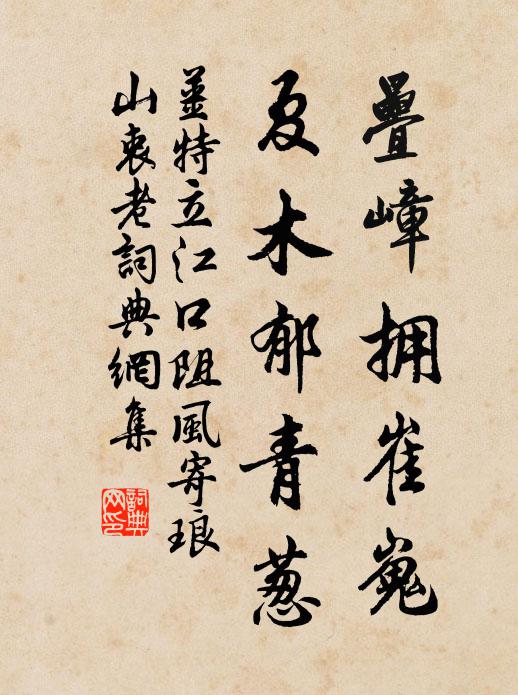 疊嶂拥崔嵬
夏木郁青葱
薑特立江口阻風寄琅
山衷老詞典網集
詞典网印